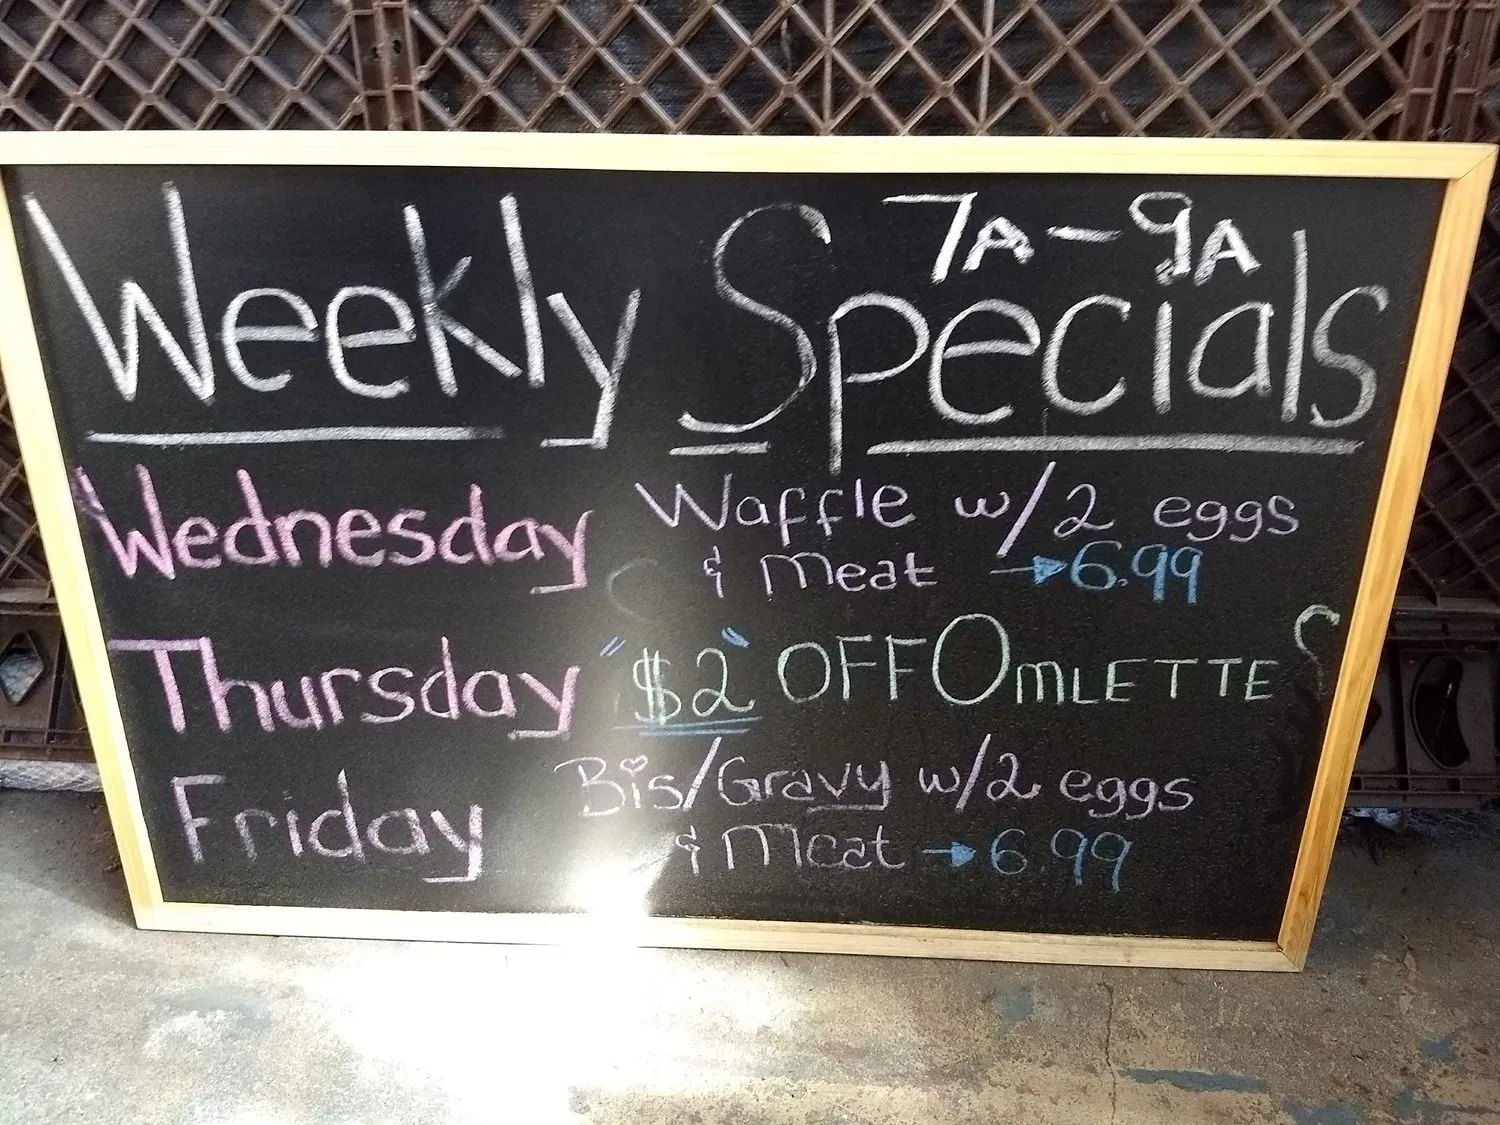 Weekly Specials
7A-9A
Wednesday Waffle w/2 eggs
& Meat → 6.99
Thursday "$2" OFF OMLETTES
Friday Bis/Gravy w/2 eggs
& Meat → 6.99